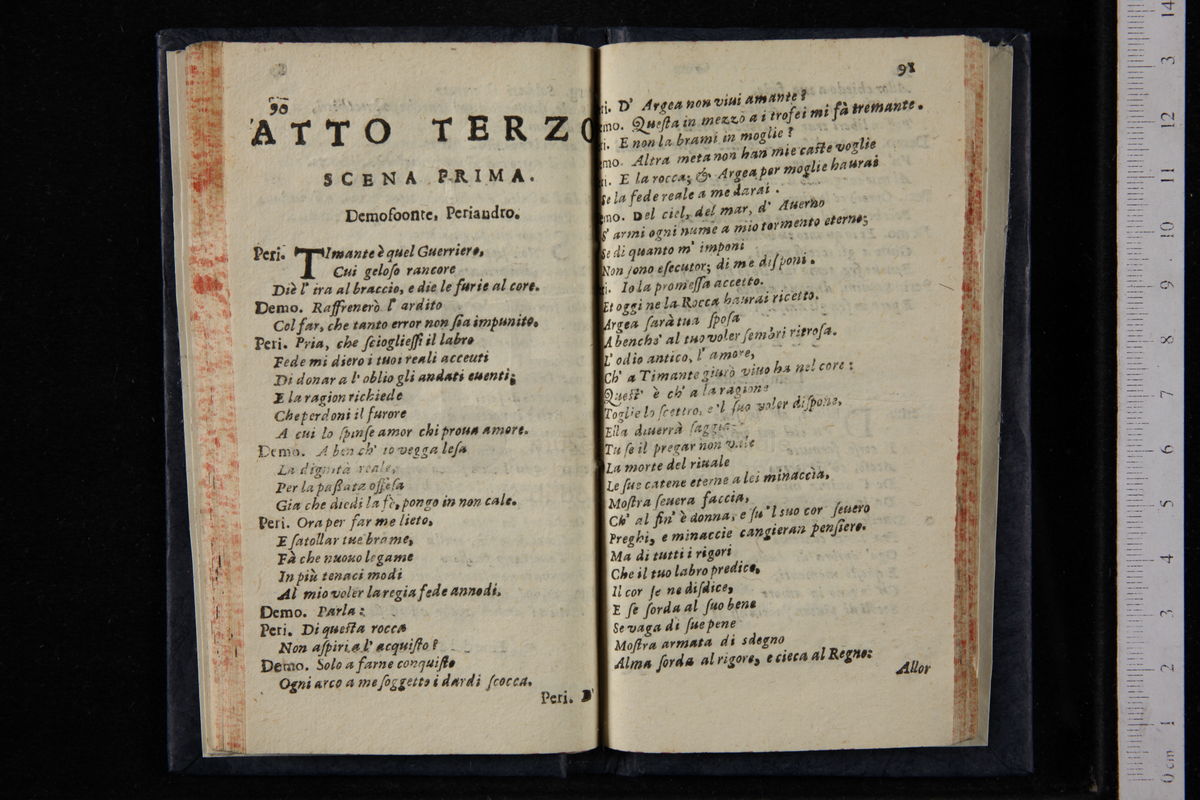 90
ATTO TERZO
SCENA PRIMA.
Demofoonte, Periandro.
Peri. TImante è quel Guerriero,
Cui geloſo rancore
Diè l' ira al braccio, e die le furie al core.
Demo. Raffrenerò l' ardito
Col far, che tanto error non ſia impunito.
Peri. Pria, che ſcioglieſſi il labro
Fede mi diero i tuoi reali accenti
Di donar a l' oblio gli andati euenti;
E la ragion richiede
Che perdoni il furore
A cui lo ſpinſe amor chi proua amore.
Demo. A ben ch' io vegga leſa
La dignità reale,
Per la paßata offeſa
Gia che diedi la fè, pongo in non cale.
Peri. Ora per far me lieto,
E ſatollar tue brame,
Fà che nuouo legame
In più tenaci modi
Al mio voler la regia fede annodi.
Demo. Parla:
Peri. Di queſta rocca
Non aſpiri a l' acquiſto?
Demo. Solo a farne conquiſto
Ogni arco a me ſoggetto i dardi ſcocca.
Peri. D'
91
ri. D' Argea non viui amante?
emo. Queſta in mezzo a i trofei mi fà tremante.
ri. E non la brami in moglie?
emo. Altra meta non han mie caſte voglie
ri. E la rocca; & Argea per moglie haurai
Se la fede reale a me darai.
emo. Del ciel, del mar, d' Auerno
S' armi ogni nume a mio tormento eterno;
Se di quanto m' imponi
Non ſono eſecutor; di me diſponi.
ri. Io la promeſſa accetto.
Et oggi ne la Rocca haurai ricetto.
Argea ſarà tua ſpoſa
A benche' al tuo voler ſembri ritroſa.
L' odio antico, l' amore,
Ch' a Timante giurò viuo ha nel core:
Queſt' è ch' a la ragione
Toglie lo ſcettro, e 'l ſuo voler diſpone,
Ella diuerrà ſaggia
Tu ſe il pregar non vale
La morte del riuale
Le ſue catene eterne a lei minaccia,
Moſtra ſeuera faccia,
Ch' al fin' è donna, e ſu 'l ſuo cor ſeuero
Preghi, e minaccie cangieran penſiero.
Ma di tutti i rigori
Che il tuo labro predice,
Il cor ſe ne diſdice,
E ſe ſorda al ſuo bene
Se vaga di ſue pene
Moſtra armata di sdegno
Alma ſorda al rigore, e cieca al Regno:
Allor